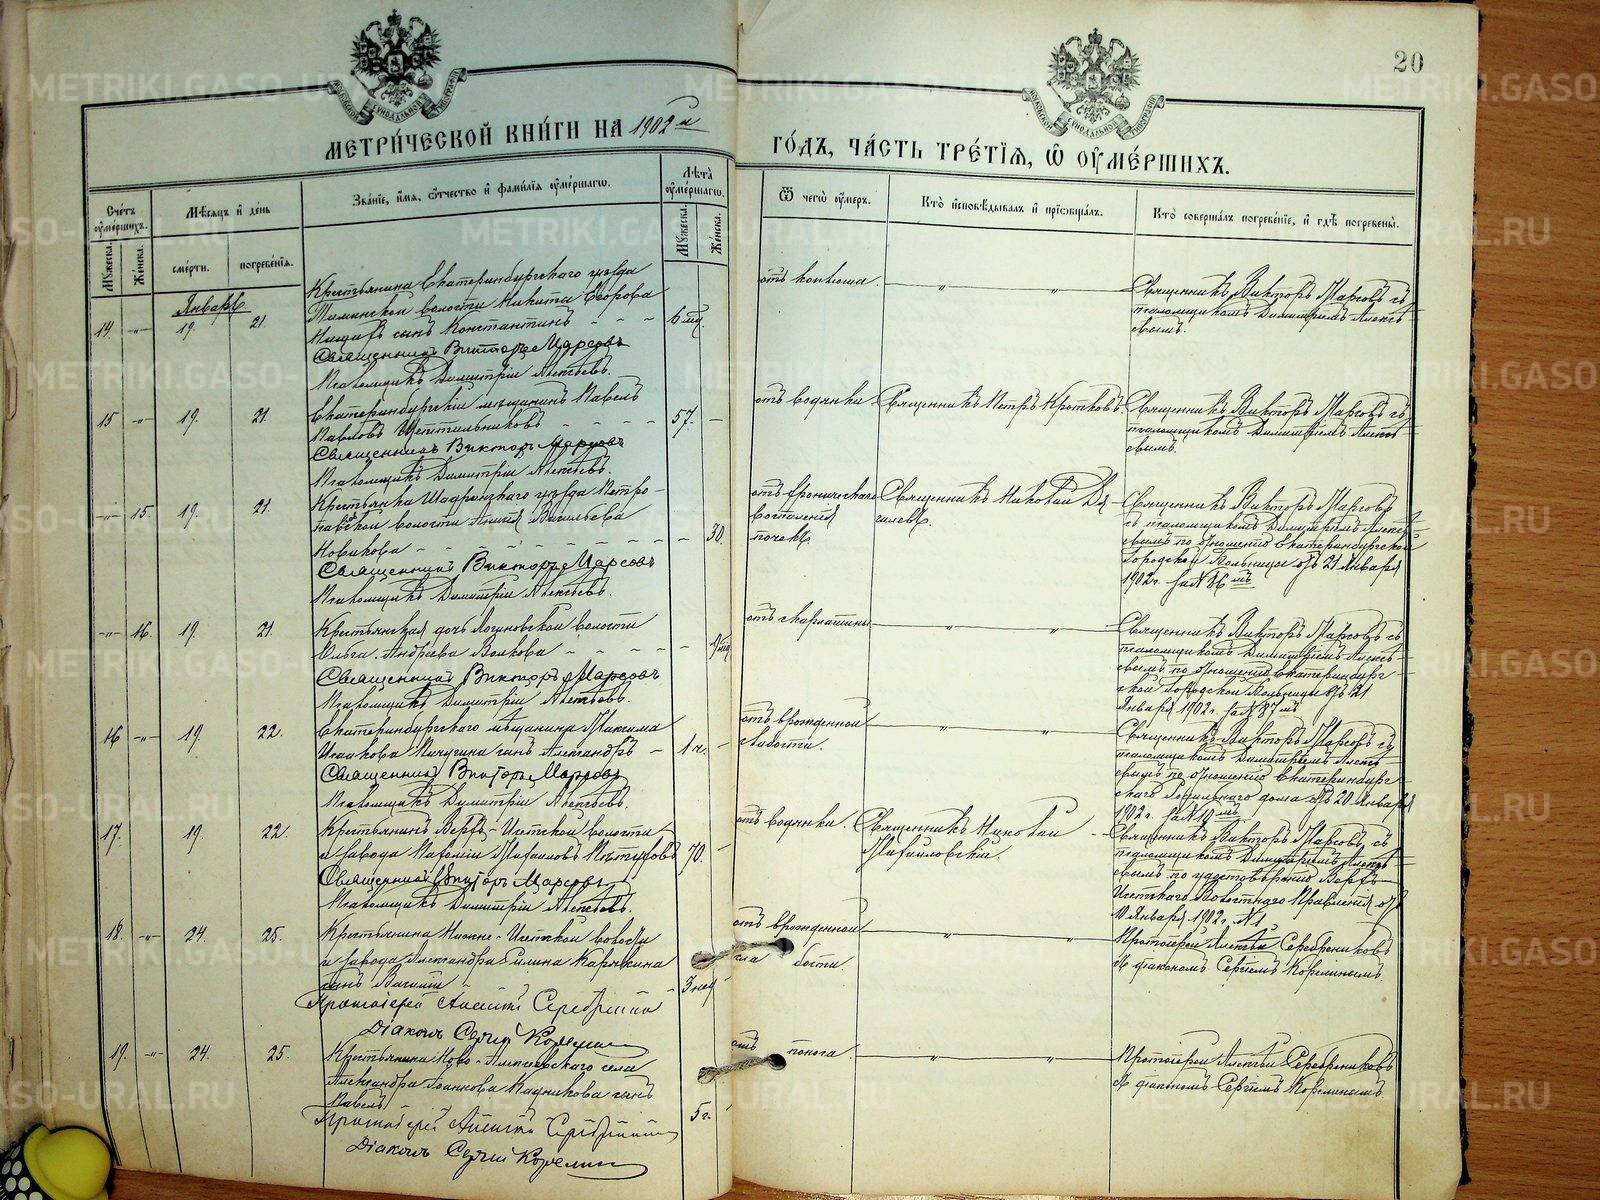 20
МЕТРИ́ЧЕСКОЙ КНИ́ГИ НА 1902 й ГО́ДЪ, ЧА́СТЬ ТРЕ́ТЇѦ, Ѽ ОУ҆МЕ́РШИХЪ.
Сче́тъ оу҆ме́ршихъ.
Мꙋ́жеска.
Же́нска.
Мѣ́сяцъ и҆ де́нь
сме́рти.
погребе́нїѧ.
Зва́нїе, и҆́мѧ, ѻ҆́тчество и҆ фами́лїѧ оу҆ме́ршагѡ.
Лѣ́та оу҆ме́ршагѡ.
Мꙋ́жеска.
Же́нска.
Ѿ чегѡ̀ оу҆́меръ.
Кто̀ и҆сповѣ́дывалъ и҆ прїѡбща́лъ.
Кто̀ соверша́лъ погребе́нїе, и҆ гдѣ̀ погребены̀.
Январь
14 -"- 19. 21.
Крестьянина Екатеринбургскаго уѣзда
волости Никиты Егорова
сынъ Константинъ - - - 6 мѣ.
Священникъ Викторъ Марсовъ
Псаломщикъ Димитрій Алексѣевъ.
отъ коклюша
Священникъ Викторъ Марсовъ съ
псаломщикомъ Димитріемъ Алексѣ-
евымъ.
15 -"- 19. 21.
Екатеринбургскій мѣщанинъ Павелъ
Павловъ - - - 57. -
Священникъ Викторъ Марсовъ
Псаломщикъ Димитрій Алексѣевъ.
отъ водянки.
Священникъ Петръ Кротковъ.
Священникъ Викторъ Марсовъ съ
псаломщикомъ Димитріемъ Алексѣ-
евымъ.
-"- 15. 19. 21.
Крестьянка Шадринскаго уѣзда Петро-
павловской волости Васильева
Новикова - - - 30.
Священникъ Викторъ Марсовъ
Псаломщикъ Димитрій Алексѣевъ.
отъ хроническаго
воспаленія
почекъ.
Священникъ Николай
Священникъ Викторъ Марсовъ
съ псаломщикомъ Димитріемъ Алексѣ-
евымъ по отношенію Екатеринбургской
Городской Больницы отъ 21 Января
1902 г. за № 86 мъ
-"- 16. 19. 21.
Крестьянская дочь Логиновской волости
Ольга Андреева Волкова - - - 9 мѣ
Священникъ Викторъ Марсовъ
Псаломщикъ Димитрій Алексѣевъ.
отъ скарлатины
Священникъ Викторъ Марсовъ съ
псаломщикомъ Димитріемъ Алексѣ-
евымъ по отношенію Екатеринбург-
ской Городской Больницы отъ 21
Января 1902 г. за № 87 мъ
16 -"- 19. 22.
Екатеринбургскаго мѣщанина Максима
Исаакова Пичугина сынъ Александръ - 1 ч. -
Священникъ Викторъ Марсовъ
Псаломщикъ Димитрій Алексѣевъ.
отъ врожденной
слабости.
Священникъ Викторъ Марсовъ съ
псаломщикомъ Димитріемъ Алексѣ-
евымъ по отношенію Екатеринбург-
скаго Родильнаго дома отъ 20 Января
1902 г. за № 19 мъ
17. -"- 19. 22.
Крестьянинъ Верхъ-Исетской волости
и завода Михаиловъ 70. -
Священникъ Викторъ Марсовъ
Псаломщикъ Димитрій Алексѣевъ.
отъ водянки.
Священникъ Николай
Михайловскій.
Священникъ Викторъ Марсовъ съ
псаломщикомъ Димитріемъ Алексѣ-
евымъ по удостовѣренію Верхъ-
Исетскаго Волостнаго Правленія отъ
Января 1902 г. № 1
18. -"- 24. 25.
Крестьянина Нижне-Исетской волости
и завода Александра Карякина
сынъ Василій - 3 нед
Протоіерей Алексій Серебренниковъ
Діаконъ Сергій Корелинъ
отъ врожденной
слабости.
Протоіерей Алексій Серебренниковъ
съ діакономъ Сергіемъ Корелинымъ.
19. -"- 24. 25.
Крестьянина Ново-Алексѣевскаго села
Александра Іоаннова Кадникова сынъ
Павелъ 5 г.
Протоіерей Алексій Серебренниковъ
Діаконъ Сергій Корелинъ
отъ поноса.
Протоіерей Алексій Серебренниковъ
съ діакономъ Сергіемъ Корелинымъ.
METRIKI.GASO-URAL.RU